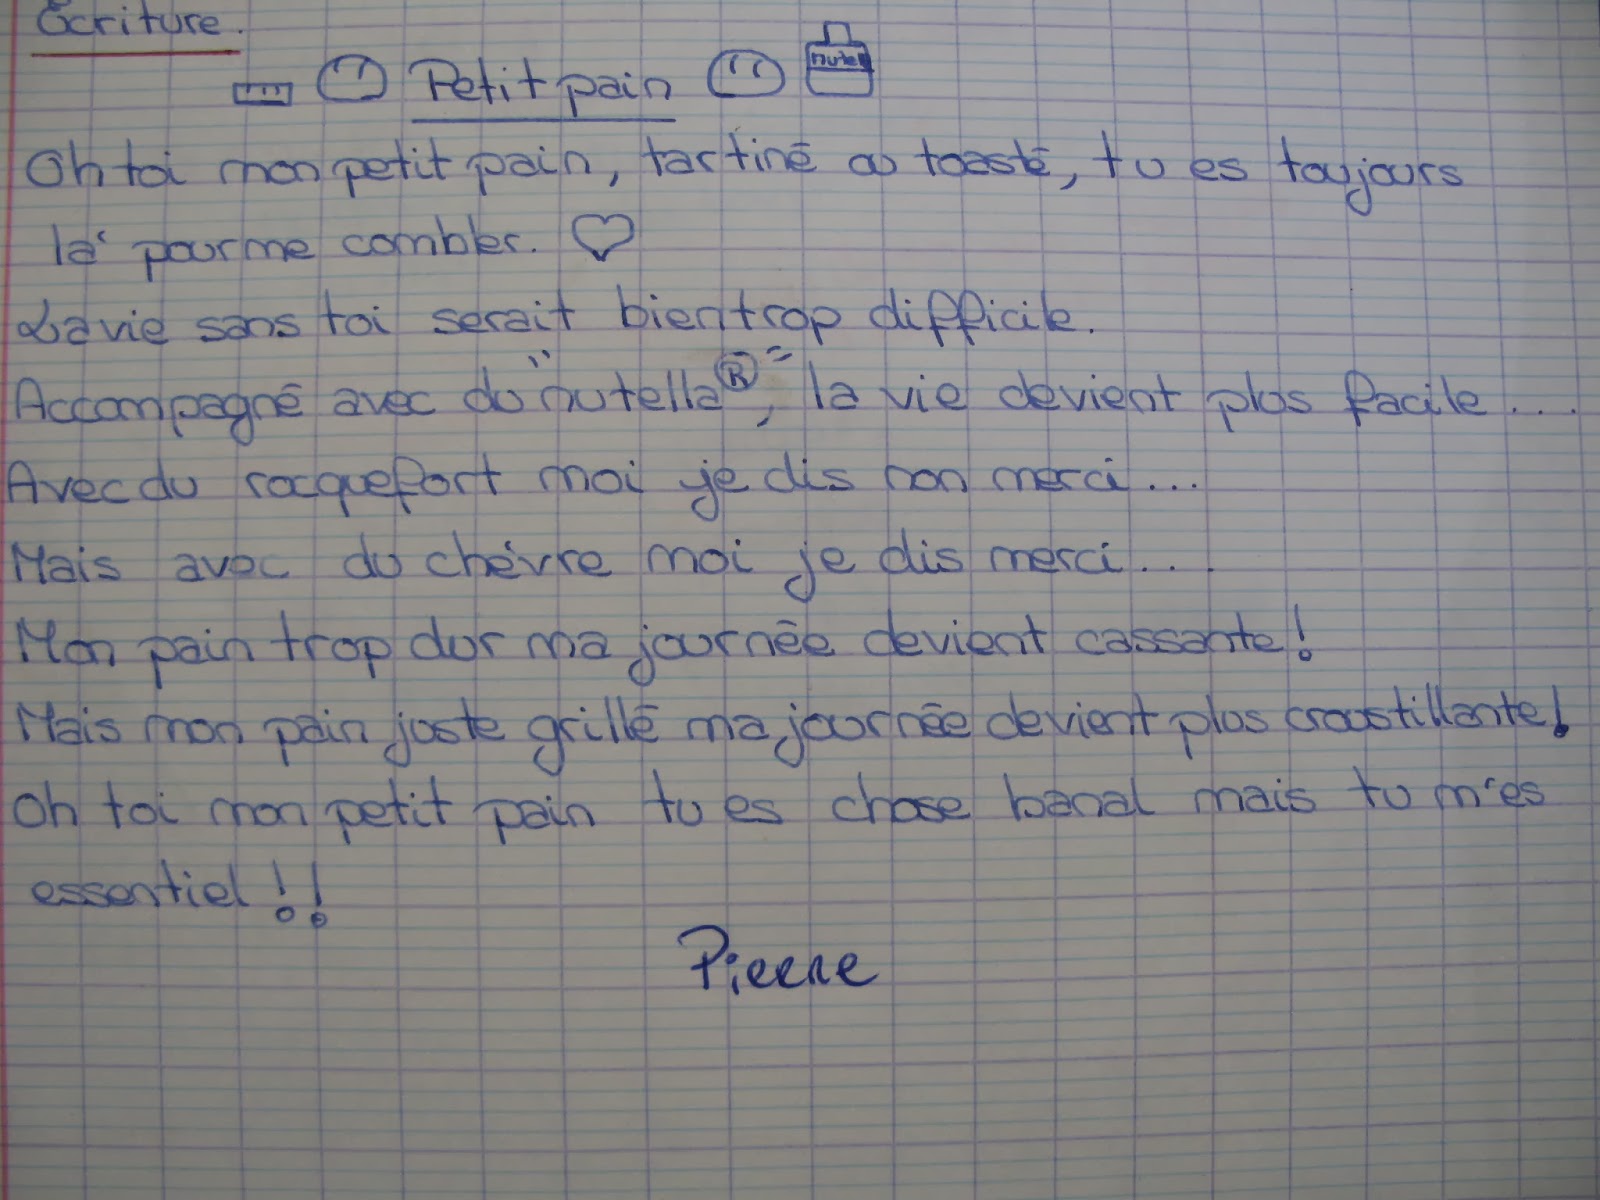 Ecriture.
Petit pain nutella
Oh toi mon petit pain, tartiné ou toasté, tu es toujours
là pour me combler. ♡
La vie sans toi serait bien trop difficile.
Accompagné avec du "nutella®", la vie devient plus facile ...
Avec du rocquefort moi je dis non merci ...
Mais avec du chévre moi je dis merci ...
Mon pain trop dur ma journée devient cassante !
Mais mon pain juste grillé ma journée devient plus croustillante !
Oh toi mon petit pain tu es chose banal mais tu m'es
essentiel !!
Pierre